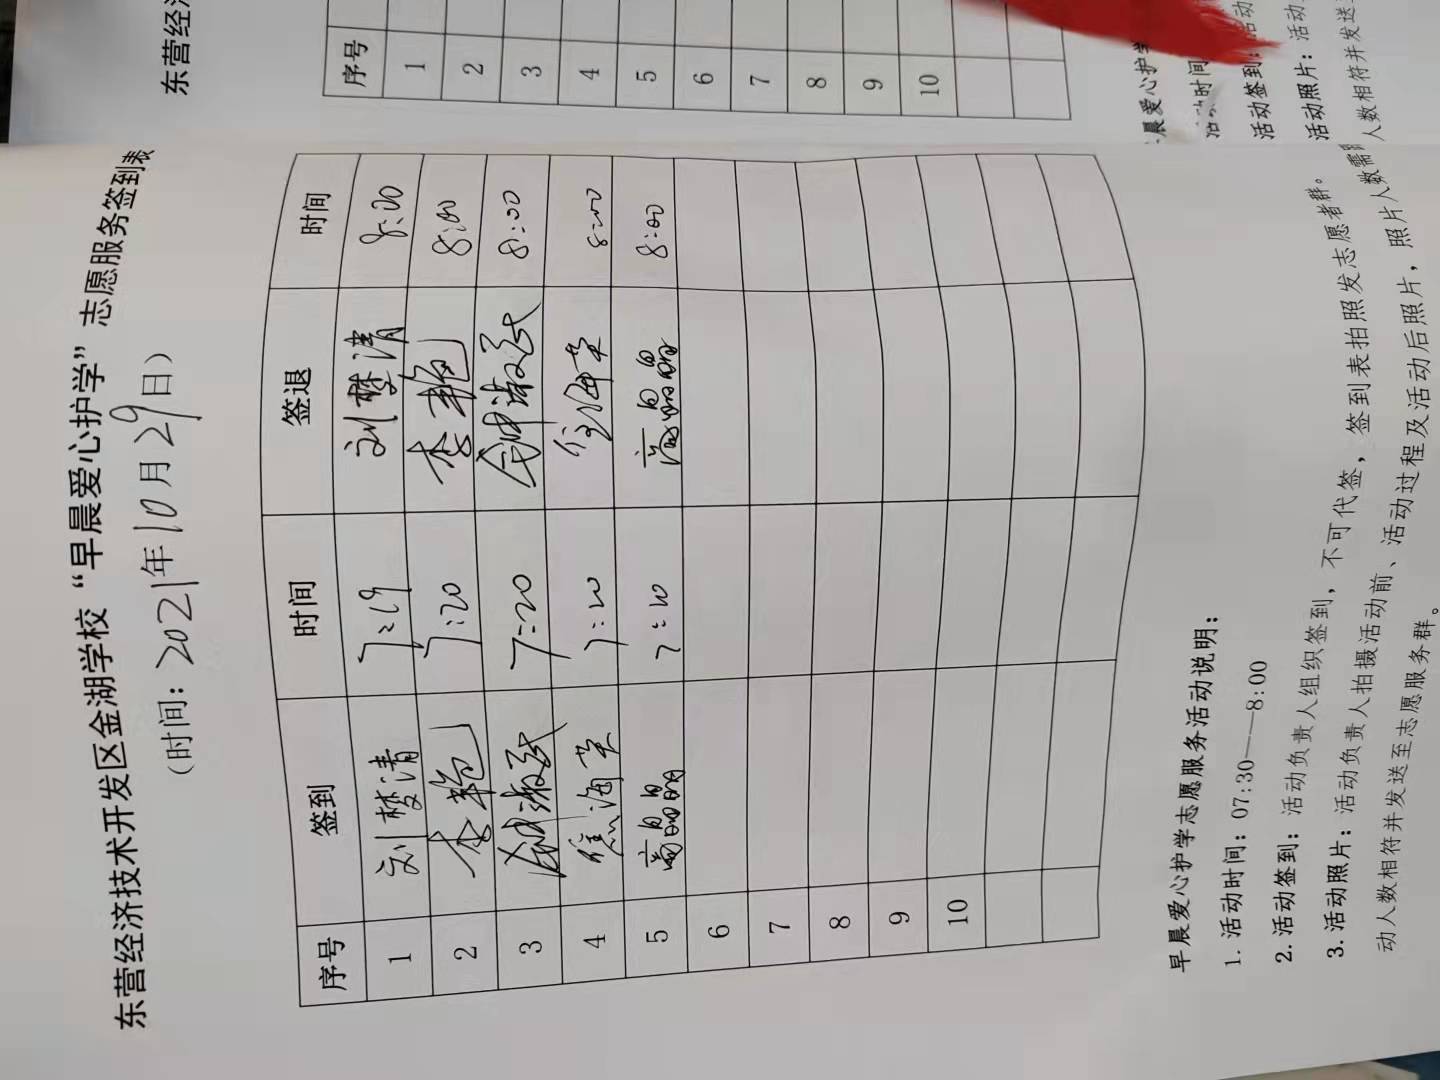 东营经济技术开发区金湖学校“早晨爱心护学”志愿服务签到表
(时间：2021年10月29日)
序号 签到 时间 签退 时间
1 刘梦清 7:19 刘梦清 8:00
2 李艳 7:20 李艳 8:00
3 7:20 8:00
4 焦海英 7:20 焦海英 8:00
5 高晶晶 7:20 高晶晶 8:00
6
7
8
9
10
早晨爱心护学志愿服务活动说明：
1.活动时间：07:30——8:00
2.活动签到：活动负责人组织签到，不可代签，签到表拍照发志愿者群。
3.活动照片：活动负责人拍摄活动前、活动过程及活动后照片，照片人数需
动人数相符并发送至志愿服务群。
东营经济
序号
1
2
3
4
5
6
7
8
9
10
晨爱心护学
活动时间
活动签到：活动
活动照片：活动
人数相符并发送